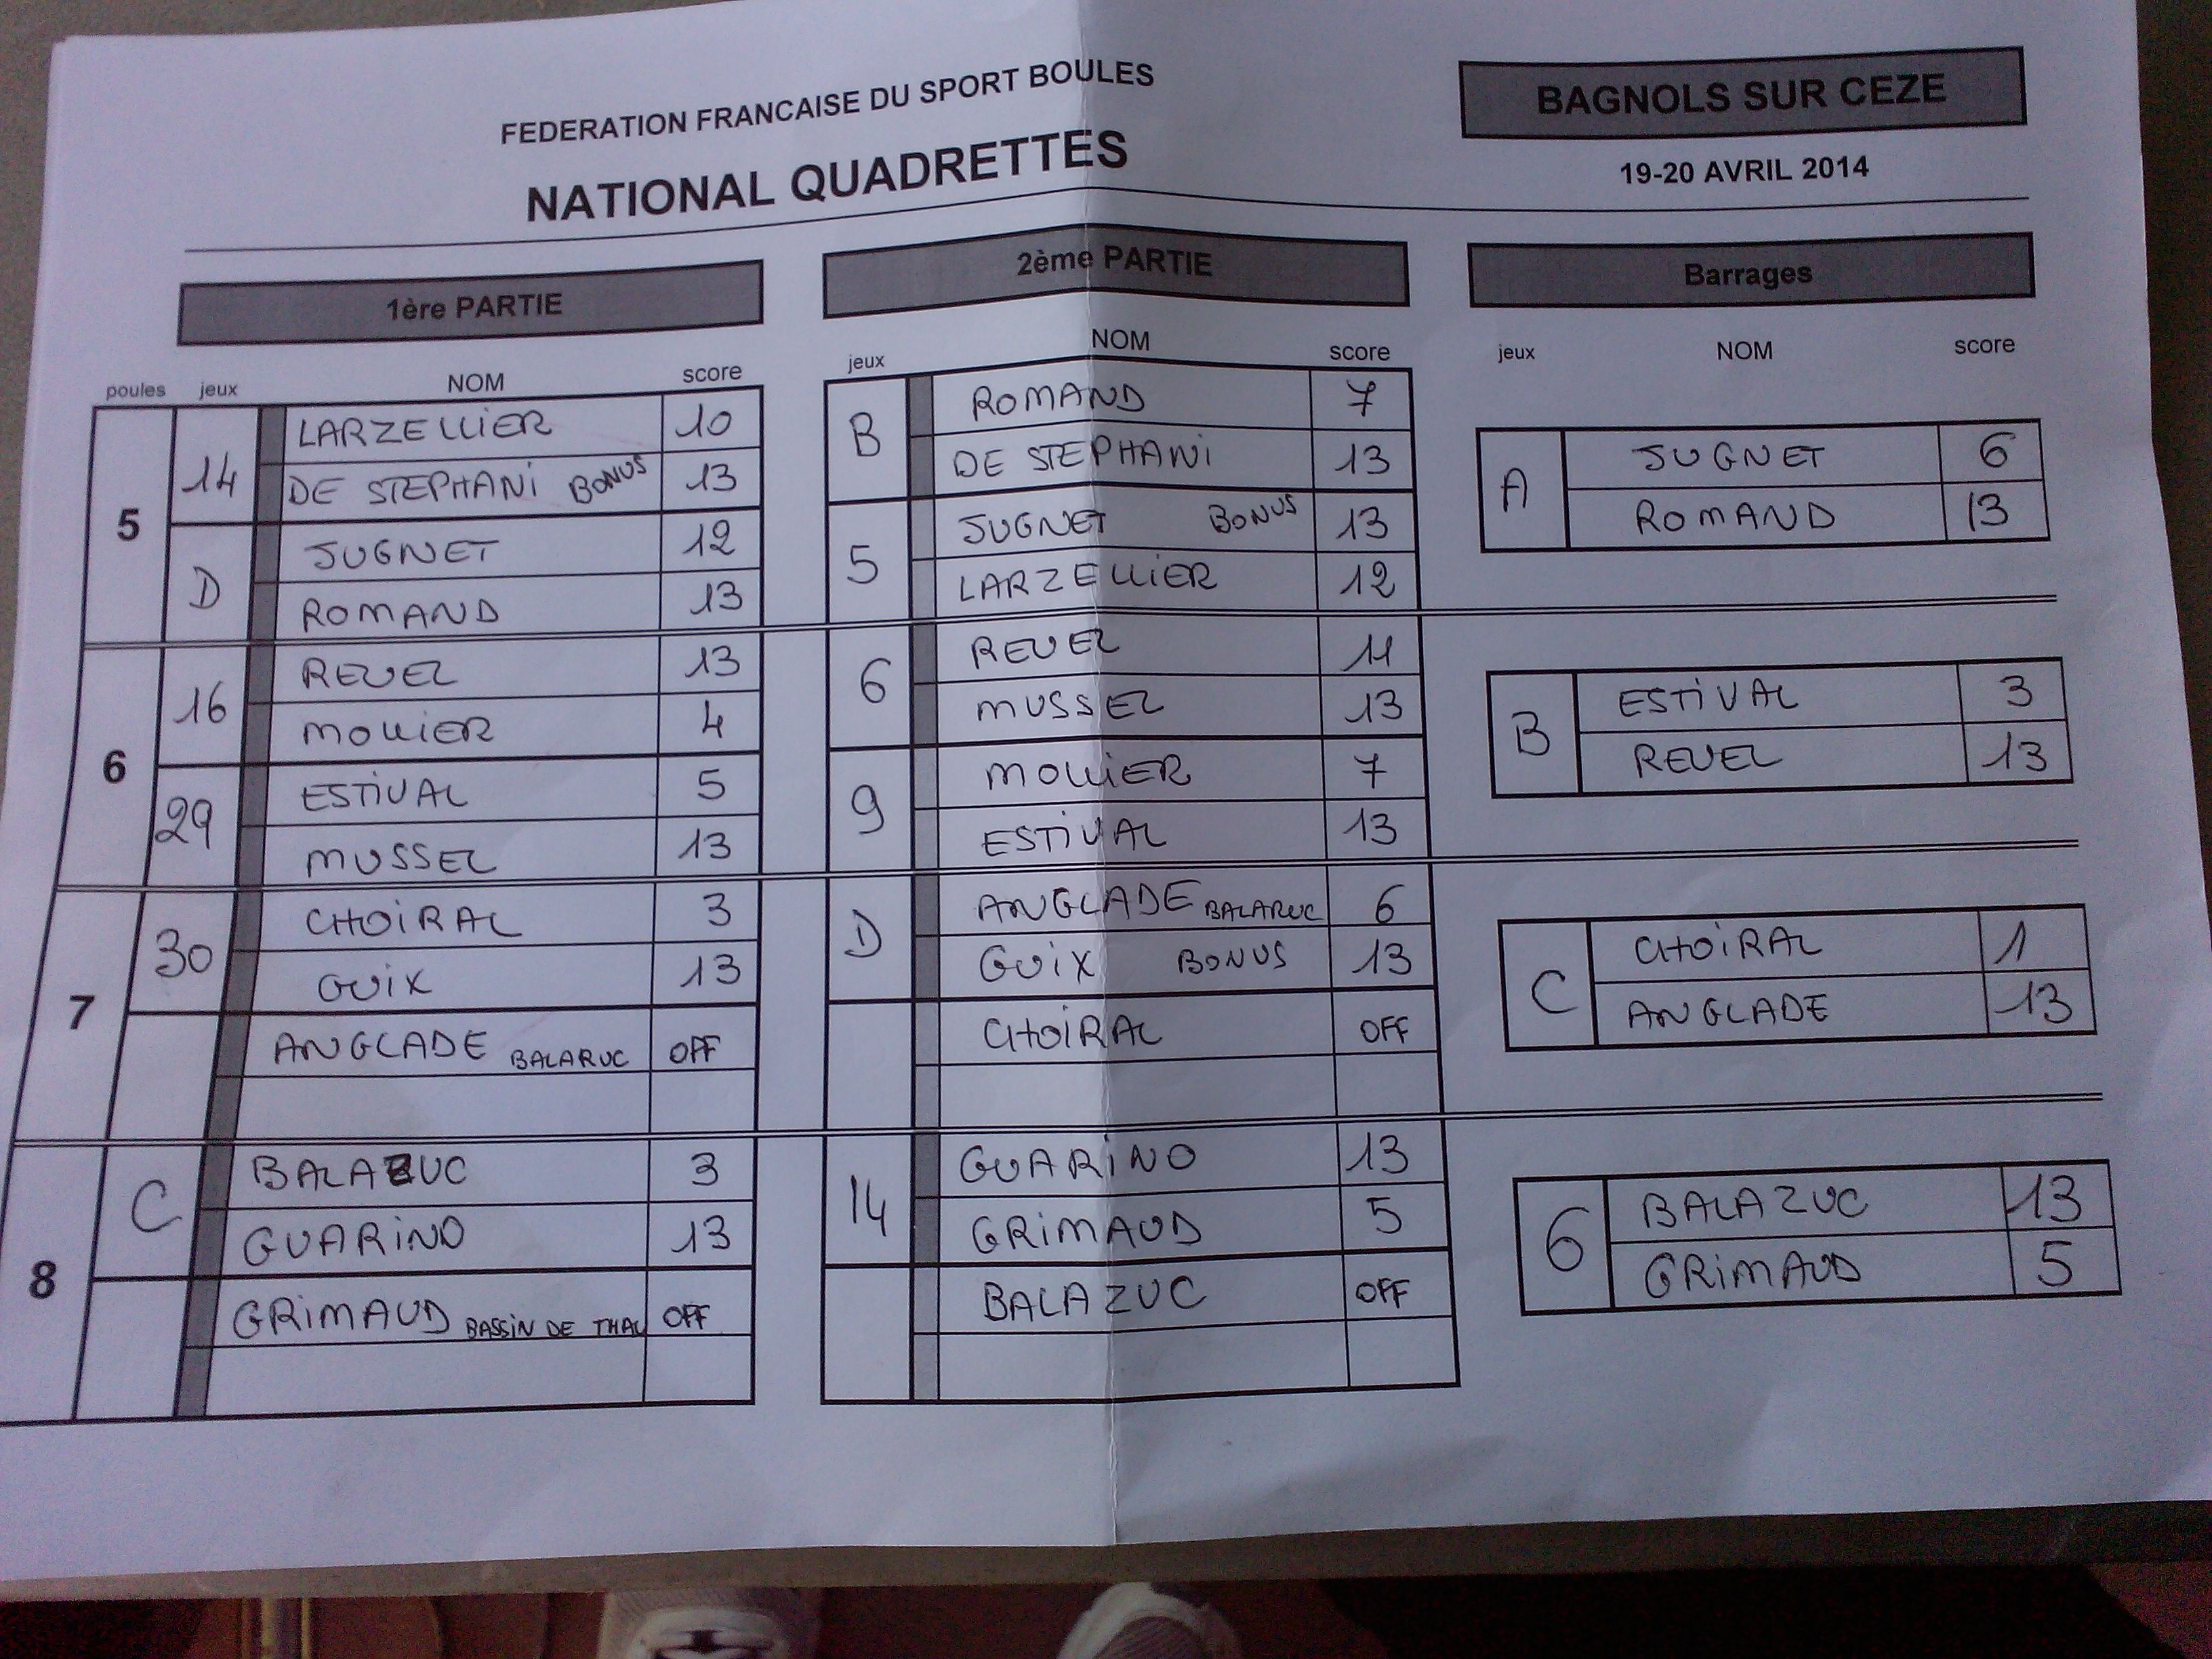 FEDERATION FRANCAISE DU SPORT BOULES
NATIONAL QUADRETTES
BAGNOLS SUR CEZE
19-20 AVRIL 2014
1ère PARTIE
poules jeux NOM score
5
14
LARZELLIER 10
DE STEPHANI BONUS 13
D
JUGNET 12
ROMAND 13
6
16
REVEL 13
MOLLIER 4
29
ESTIVAL 5
MUSSEL 13
7
30
CHOIRAL 3
GUIX 13
ANGLADE BALARUC OFF
8
C
BALAZUC 3
GUARINO 13
GRIMAUD BASSIN DE THAU OFF
2ème PARTIE
jeux NOM score
B
ROMAND 7
DE STEPHANI 13
5
JUGNET BONUS 13
LARZELLIER 12
6
REVEL 11
MUSSEL 13
9
MOLLIER 7
ESTIVAL 13
D
ANGLADE BALARUC 6
GUIX BONUS 13
CHOIRAL OFF
14
GUARINO 13
GRIMAUD 5
BALAZUC OFF
Barrages
jeux NOM score
A
JUGNET 6
ROMAND 13
B
ESTIVAL 3
REVEL 13
C
CHOIRAL 1
ANGLADE 13
6
BALAZUC 13
GRIMAUD 5